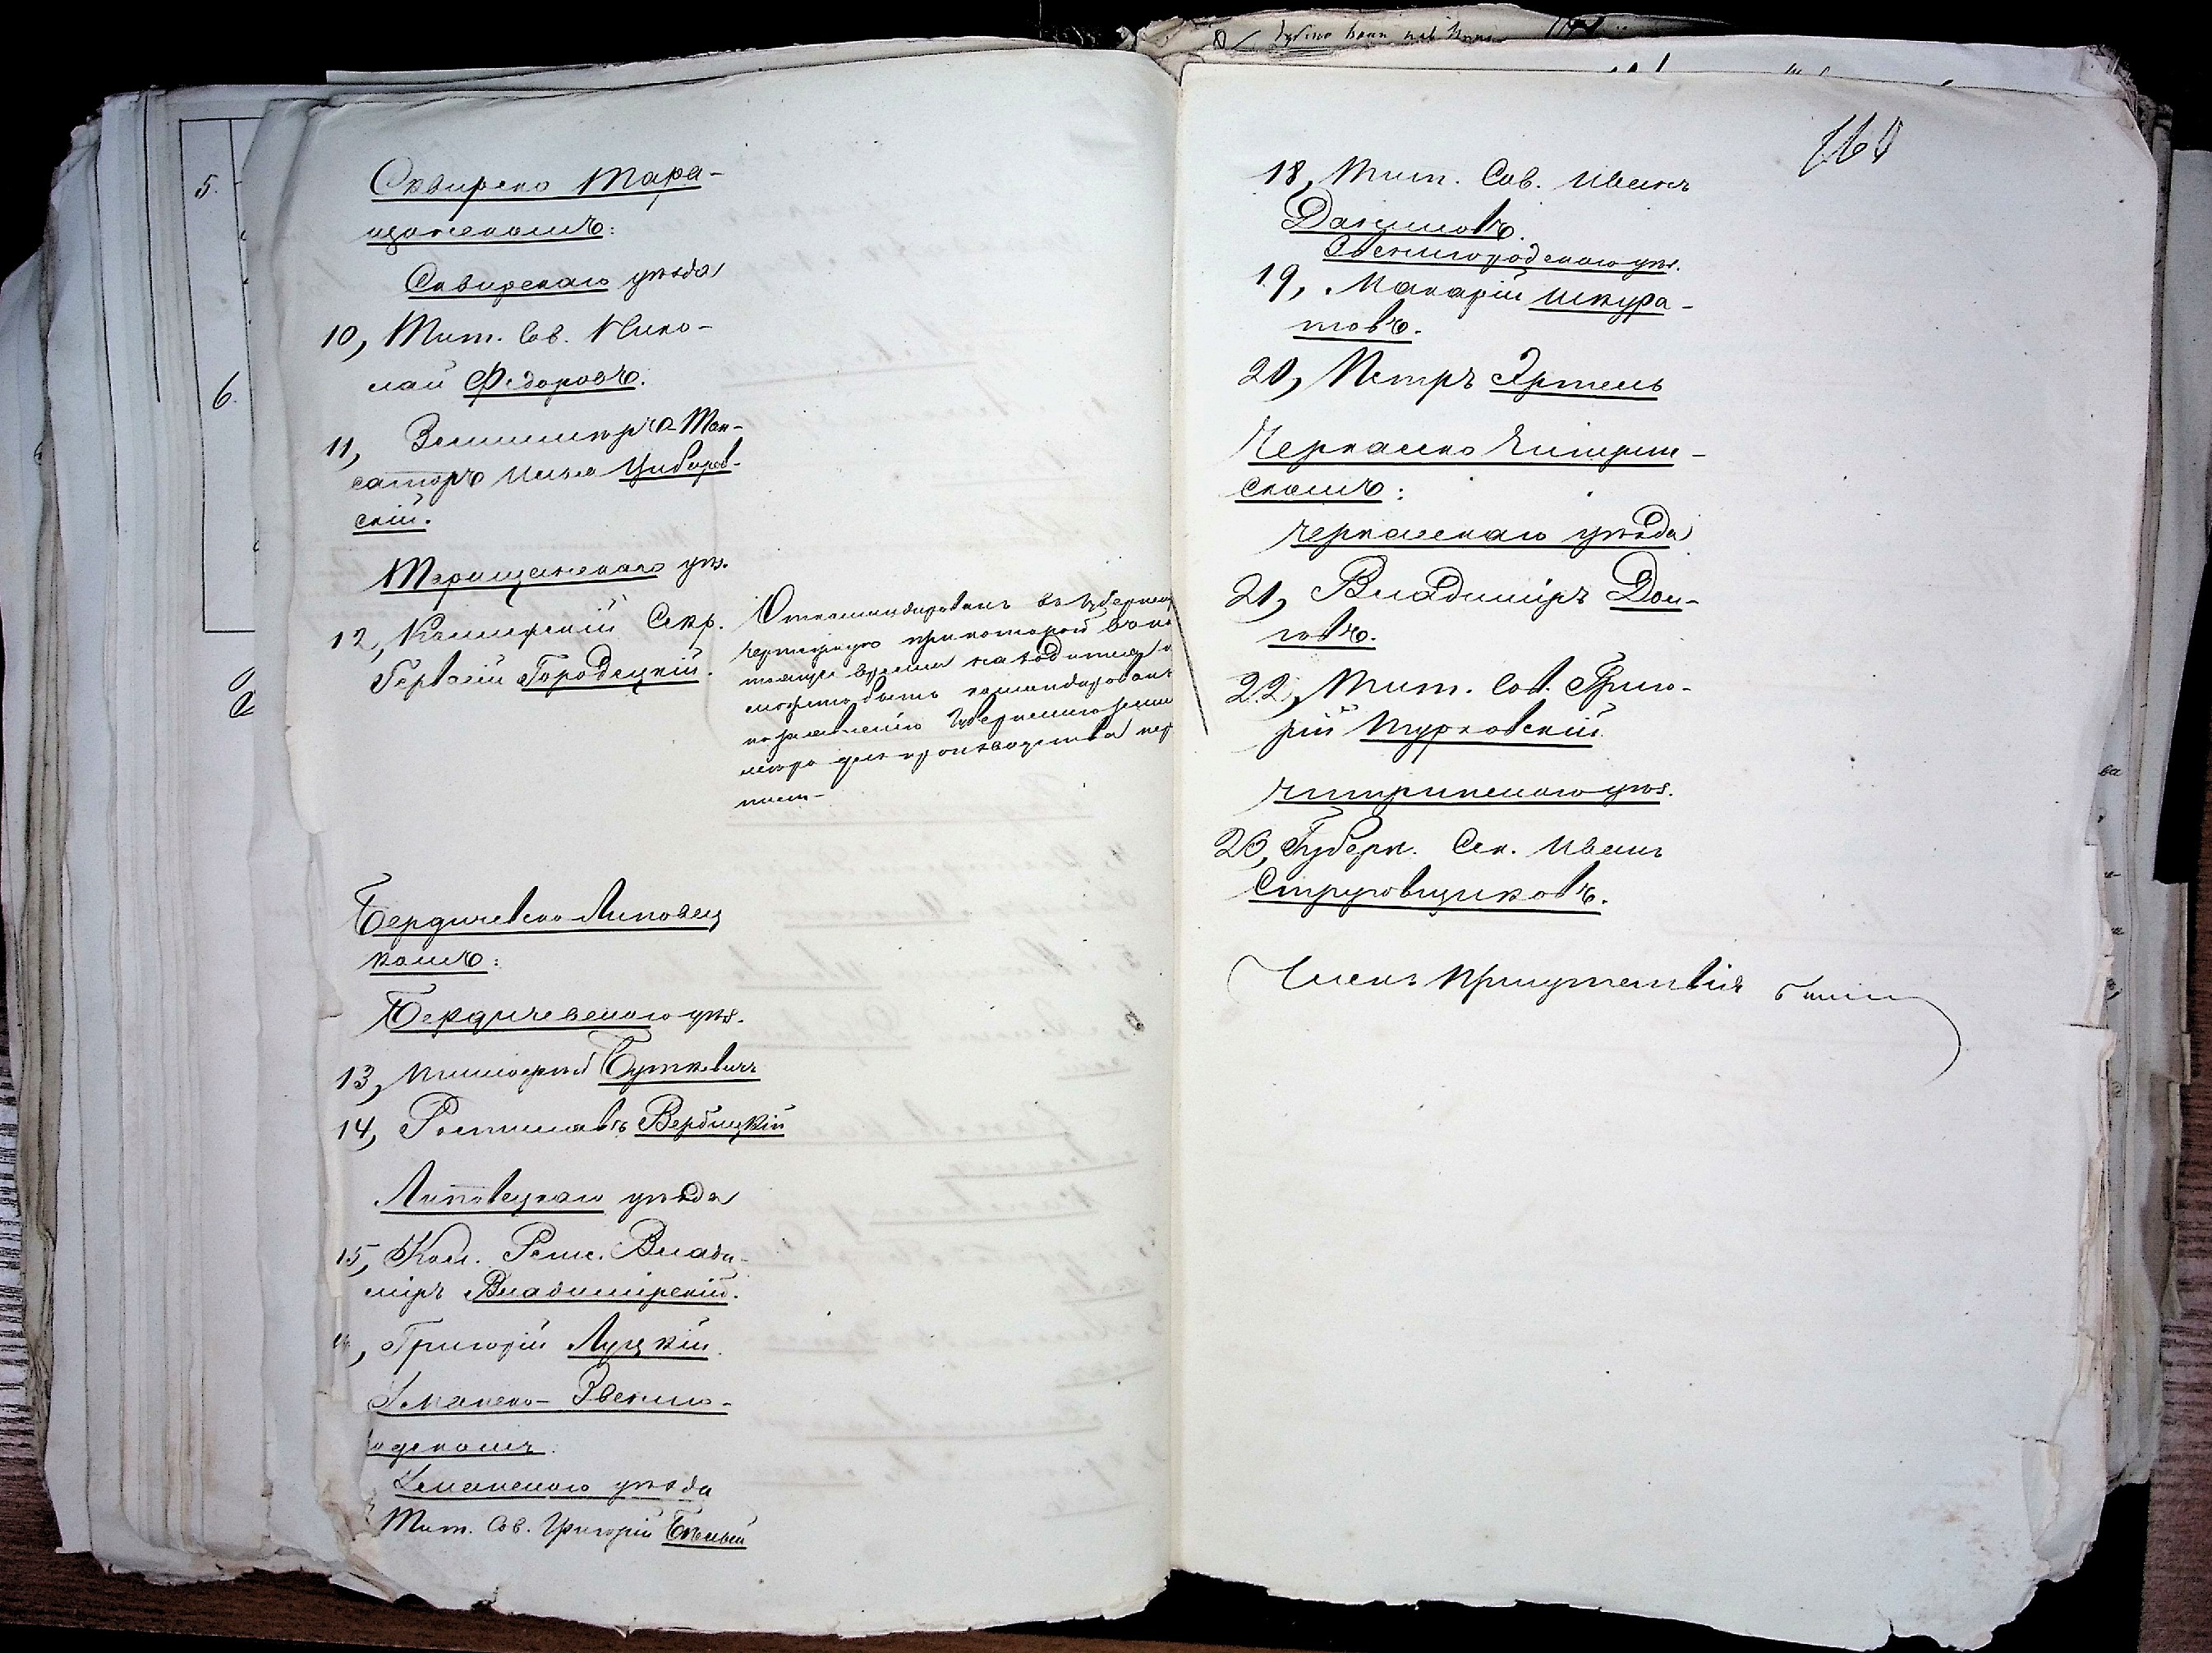 Сквирско Тара-
щанскомъ:
Сквирскаго уѣзда
10, Тит. Сов. Нико-
лай Ѳедоровъ.
11, Землемѣръ-Так-
саторъ Илья Циборов-
скій.
Таращанскаго уѣз.
12, Коллежскій Секр.
Гервасій Городецкій.
Откомандированъ въ Губернск
чертежную при которой въ на
тоящее время находится и
можетъ быть командированъ
по заявленію Губернскаго земле
мѣра для производства
Бердичевско-Липовец
комъ:
Бердичевскаго уѣз.
13, Тимофей Буткевичъ
14, Ростиславъ Вербицкій
Липовецкаго уѣзда
15, Кол. Рег. Влади-
міръ Владимірскій.
, Григорій Луцкій.
Уманско-Звениго-
одскомъ.
Уманскаго уѣзда
Тит. Сов. Григорій Бѣлый
5.
6.
160
18, Тит. Сов. Иванъ
Даниловъ.
Звенигородскаго уѣз.
19, Макарій Шкура-
товъ.
20, Петръ Эртель
Черкасско Чигирин-
скомъ:
Черкасскаго уѣзда
21, Владиміръ Дол-
говъ.
22, Тит. Сов. Григо-
рій Турковскій.
Чигиринскаго уѣз.
23, Губерн. Сек. Иванъ
Струговщиковъ.
Членъ Присутствія